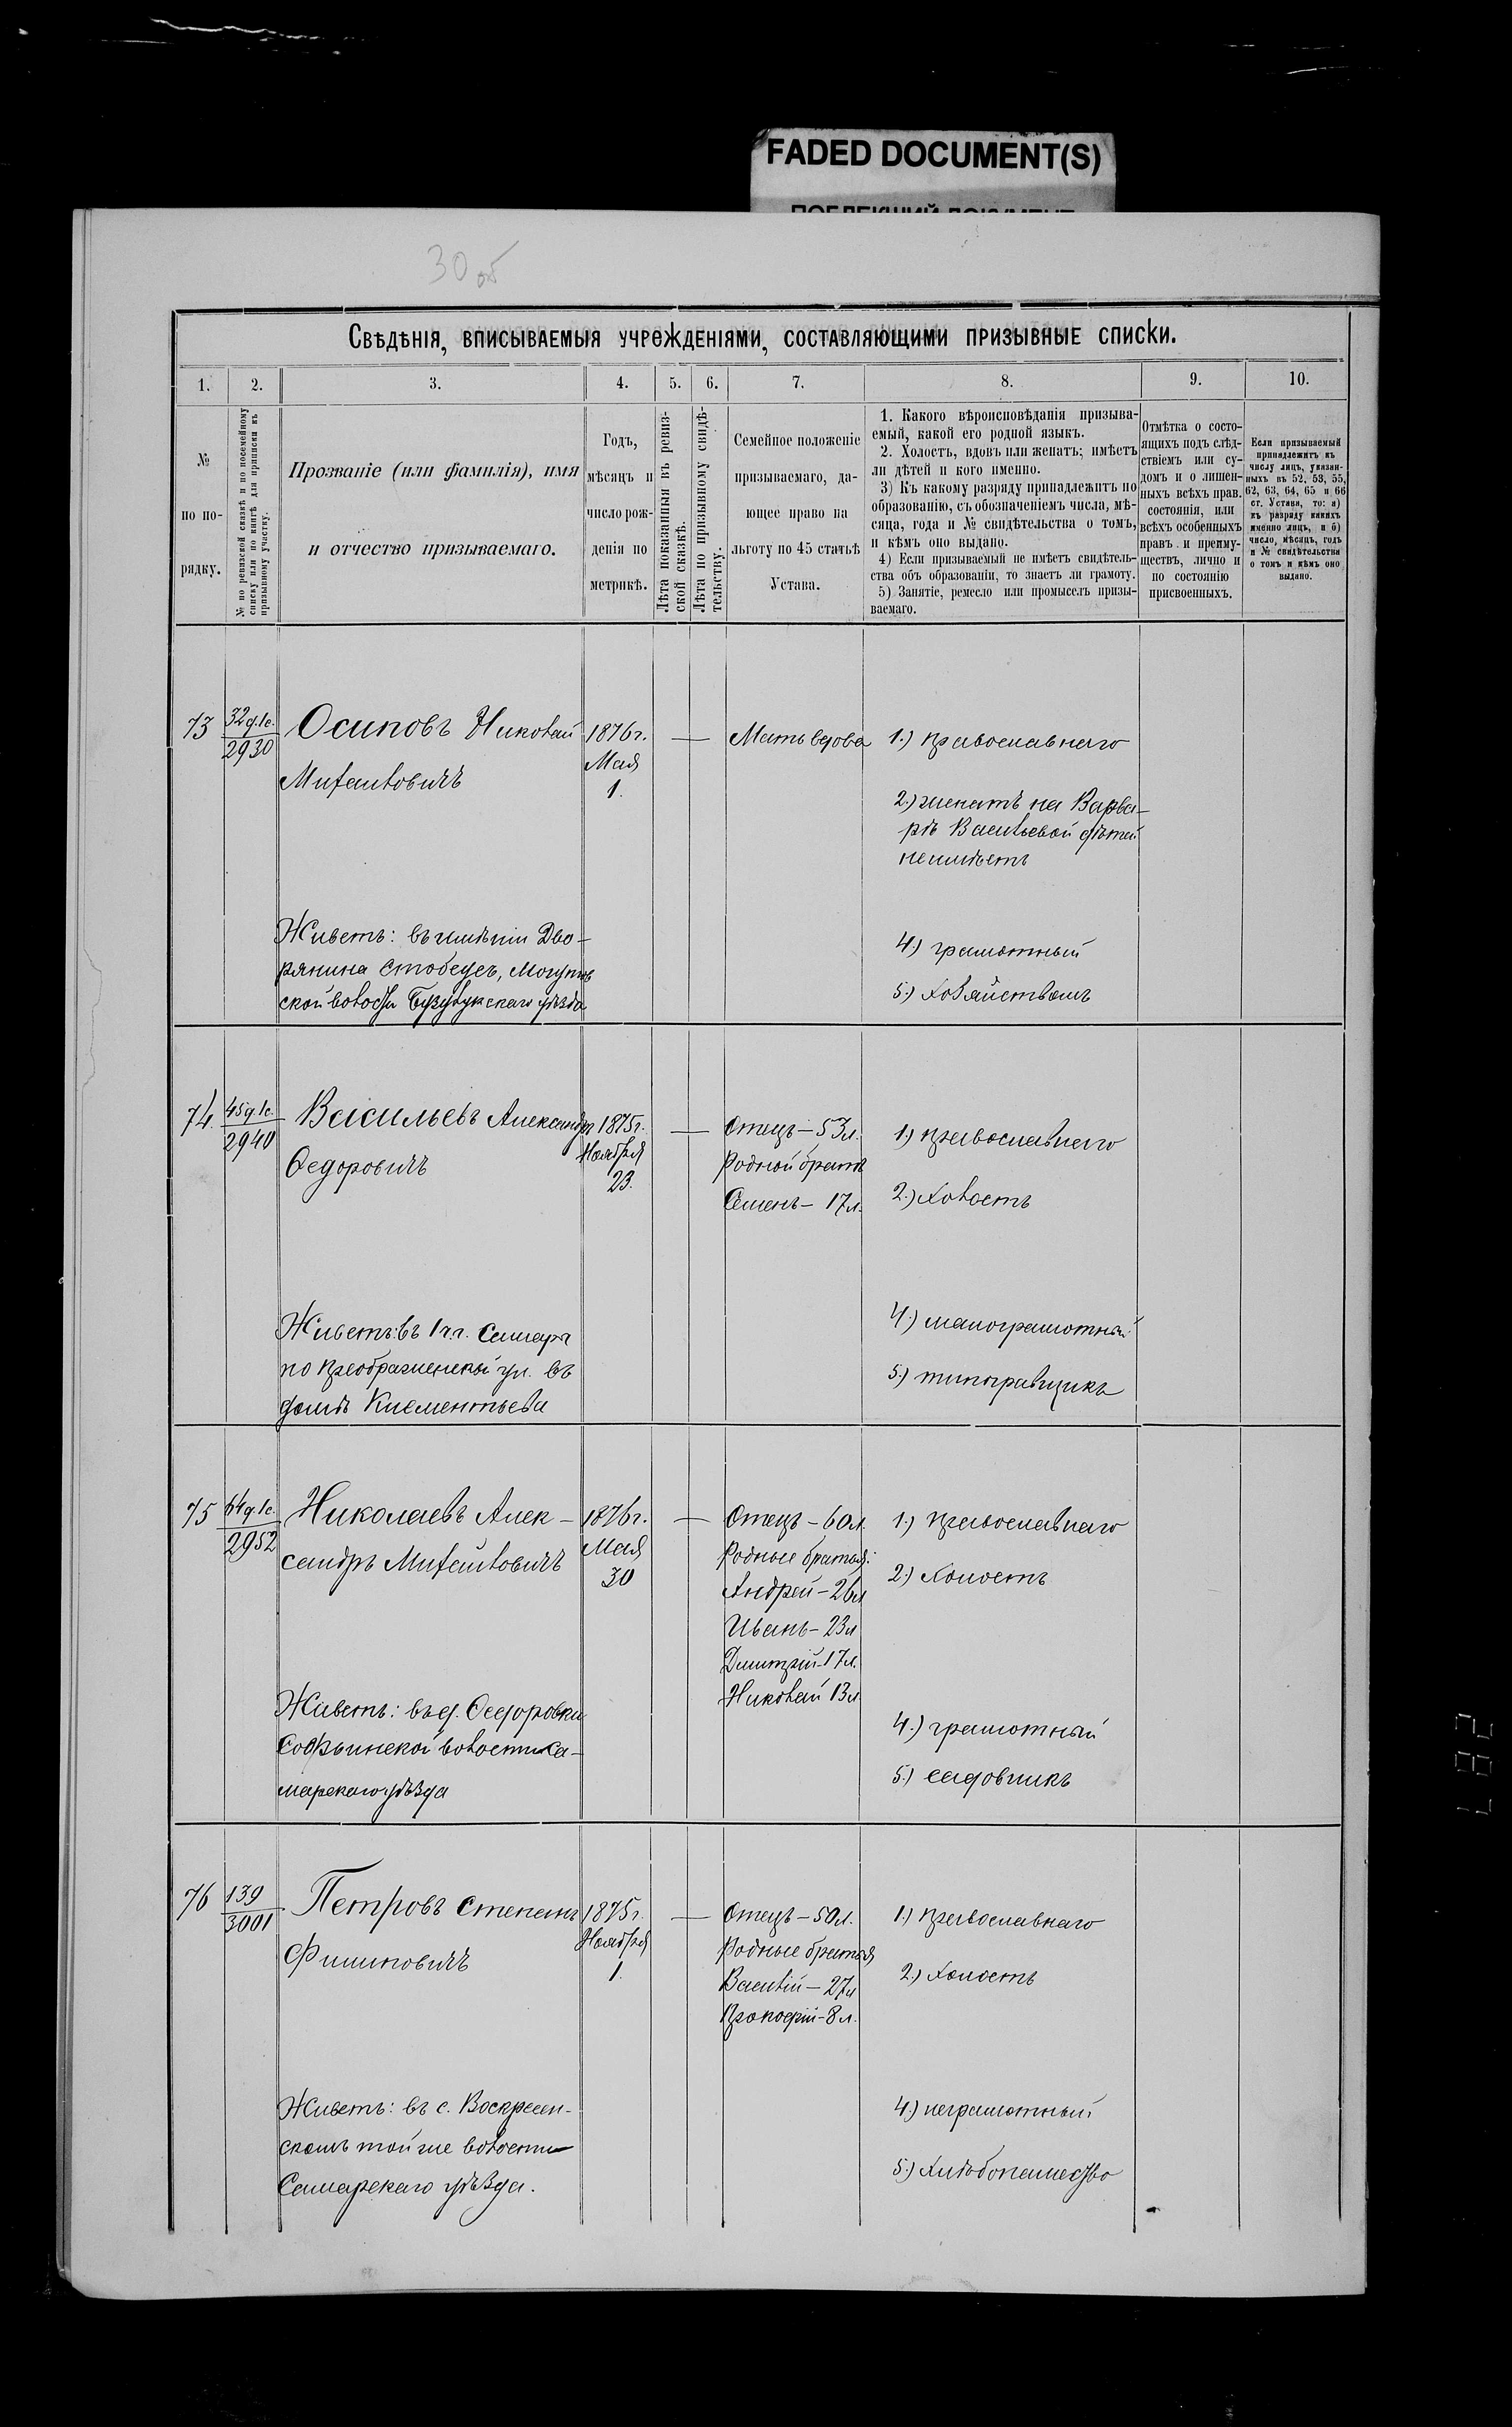 FADED DOCUMENT(S)
30 об
Свѣдѣнія, вписываемыя учрежденіями, составляющими призывные списки.
1.
2.
3.
4.
5.
6.
7.
8.
9.
10.
№
по по-
рядку.
№ по ревизской сказкѣ и по посемейному
списку или по книгѣ для приписки къ
призывному участку.
Прозваніе (или фамилія), имя
и отчество призываемаго.
Годъ,
мѣсяцъ и
число рож-
денія по
метрикѣ.
Лѣта показанныя въ ревиз-
ской сказкѣ.
Лѣта по призывному свидѣ-
тельству.
Семейное положеніе
призываемаго, да-
ющее право на
льготу по 45 статьѣ
Устава.
1. Какого вѣроисповѣданія призыва-
емый, какой его родной языкъ.
2. Холостъ, вдовъ или женатъ; имѣетъ
ли дѣтей и кого именно.
3) Къ какому разряду принадлежитъ по
образованію, съ обозначеніемъ числа, мѣ-
сяца, года и № свидѣтельства о томъ,
и кѣмъ оно выдано.
4) Если призываемый не имѣетъ свидѣтель-
ства объ образованіи, то знаетъ ли грамоту.
5) Занятіе, ремесло или промыселъ призы-
ваемаго.
Отмѣтка о состо-
ящихъ подъ слѣд-
ствіемъ или су-
домъ и о лишен-
ныхъ всѣхъ прав.
состоянія, или
всѣхъ особенныхъ
правъ и преиму-
ществъ, лично и
по состоянію
присвоенныхъ.
Если призываемый
принадлежитъ къ
числу лицъ, указан-
ныхъ въ 52, 53, 55,
62, 63, 64, 65 и 66
ст. Устава, то: а)
къ разряду какихъ
именно лицъ, и б)
число, мѣсяцъ, годъ
и № свидѣтельства
о томъ и кѣмъ оно
выдано.
73
32 д.1с.
2930
Осиповъ Николай
Михайловичъ
1876 г.
Мая
1.
—
Мать вдова
1.) православнаго
2.) женатъ на Варва-
рѣ Васильевой дѣтей
неимѣетъ
4.) грамотный
5.) хозяйствомъ
Живетъ: въ имѣніи Дво-
рянина Стобеусъ, Могутов
ской волости Бузулукскаго уѣзда
74.
45 д.1с.
2940
Васильевъ Александръ
Ѳедоровичъ
1875 г.
Ноября
23.
—
Отецъ – 53 л.
родной братъ
Семенъ – 17 л.
1.) православнаго
2.) холостъ
4.) малограмотный
5.)
Живетъ: въ 1 ч. г. Самары
по Преображенской ул. въ
домѣ Клементьева
75
64 д.1с.
2952
Николаевъ Алек-
сандръ Михайловичъ
1876 г.
Мая
30
—
Отецъ – 60 л.
родные братья:
Андрей – 26 л
Иванъ – 23 л
Дмитрій – 17 л.
Николай 13 л
1.) православнаго
2.) холостъ
4.) грамотный
5.) садовникъ
Живетъ: въ д. Ѳедоровки
Софьинской волости Са-
марскаго уѣзда
76
139
3001
Петровъ Степанъ
Филиповичъ
1875 г.
Ноября
1.
—
Отецъ – 50 л.
родные братья
Василій – 27 л
Прокофій – 8 л.
1.) православнаго
2.) холостъ
4.) неграмотный
5.) хлѣбопашество
Живетъ: въ с. Воскресен-
скомъ той же волости
Самарскаго уѣзда.
287